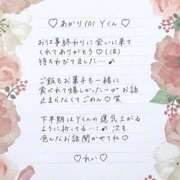 ♡ あかり for Yくん ♡
お仕事終わりに会いに来て
くれてありがとう♡(土)
待ちわびてました…♪
ご飯もお菓子も一緒に
食べれて嬉しかった〜♡お話
止まらなくてごめん♡笑
下半期はYくんの運気上がる
ように祈ってる…♪次も
色んなお話聞かせてね
♡ れい ♡